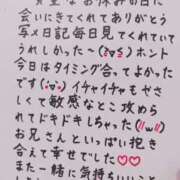 貴重なお休みの日に
会いにきてくれてありがとう
写メ日記毎日見てくれていて
うれしかったー(≧▽≦)ホント
今日はタイミング合ってよかった
です(ˊᵕˋ)イチャイチャもぜい
敏感なとこ攻めら
れてドキドキしちゃった(//ω//)
お兄さんといっぱい抱き
合えて幸せでした♡♡
また一緒に気持ちいいこと